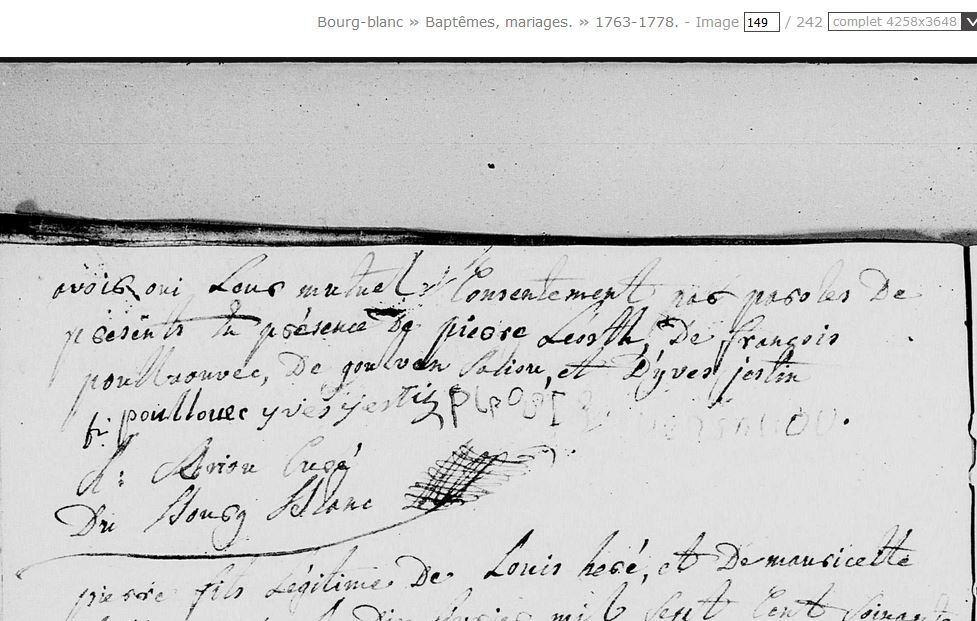 Bourg-blanc » Baptêmes, mariages. » 1763-1778. - Image 149 / 242 complet 4258x3648
avoir oui Leur mutuel Consentement par paroles De
presents En présence De pierre Leost, De françois
poullaouec, De goulven Saliou, et D'yves jestin
fr: poullouec yves jestin
Curé
Du Bourg Blanc
pierre fils Légitime De Louis heré, et De mauricette
mil Sept Cent Soixant